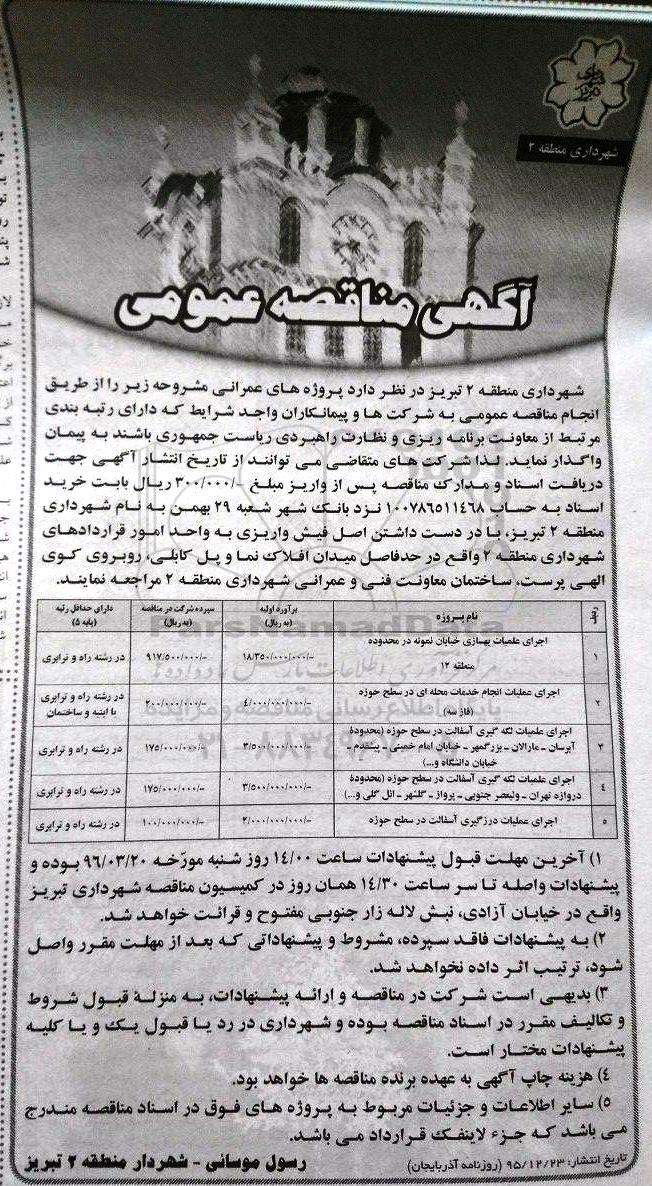 شهرداری تبریز
شهرداری منطقه ۲
آگهی مناقصه عمومی
شهرداری منطقه ۲ تبریز در نظر دارد پروژه های عمرانی مشروحه زیر را از طریق
انجام مناقصه عمومی به شرکت ها و پیمانکاران واجد شرایط که دارای رتبه بندی
مرتبط از معاونت برنامه ریزی و نظارت راهبردی ریاست جمهوری باشند به پیمان
واگذار نماید. لذا شرکت های متقاضی می توانند از تاریخ انتشار آگهی جهت
دریافت اسناد و مدارک مناقصه پس از واریز مبلغ -/۳۰۰/۰۰۰ ریال بابت خرید
اسناد به حساب ۱۰۰۷۸۶۵۱۱۴۶۸ نزد بانک شهر شعبه ۲۹ بهمن به نام شهرداری
منطقه ۲ تبریز، با در دست داشتن اصل فیش واریزی به واحد امور قراردادهای
شهرداری منطقه ۲ واقع در حدفاصل میدان افلاک نما و پل کابلی، روبروی کوی
الهی پرست، ساختمان معاونت فنی و عمرانی شهرداری منطقه ۲ مراجعه نمایند.
ردیف نام پروژه برآورد اولیه (به ریال) سپرده شرکت در مناقصه (به ریال) دارای حداقل رتبه (پایه ۵)
۱ اجرای عملیات بهسازی خیابان نمونه در محدوده منطقه ۱۲ ۱۸/۳۵۰/۰۰۰/۰۰۰/- ۹۱۷/۵۰۰/۰۰۰/- در رشته راه و ترابری
۲ اجرای عملیات انجام خدمات محله ای در سطح حوزه (فاز سه) ۴/۰۰۰/۰۰۰/۰۰۰/- ۲۰۰/۰۰۰/۰۰۰/- در رشته راه و ترابری یا ابنیه و ساختمان
۳ اجرای عملیات لکه گیری آسفالت در سطح حوزه (محدودهٔ آبرسان ـ مارالان ـ بزرگمهر ـ خیابان امام خمینی ـ پیشقدم ـ خیابان دانشگاه و...) ۳/۵۰۰/۰۰۰/۰۰۰/- ۱۷۵/۰۰۰/۰۰۰/- در رشته راه و ترابری
۴ اجرای عملیات لکه گیری آسفالت در سطح حوزه (محدودهٔ دروازه تهران ـ ولیعصر جنوبی ـ پرواز ـ گلشهر ـ ائل گلی و...) ۳/۵۰۰/۰۰۰/۰۰۰/- ۱۷۵/۰۰۰/۰۰۰/- در رشته راه و ترابری
۵ اجرای عملیات درزگیری آسفالت در سطح حوزه ۲/۰۰۰/۰۰۰/۰۰۰/- ۱۰۰/۰۰۰/۰۰۰/- در رشته راه و ترابری
۱) آخرین مهلت قبول پیشنهادات ساعت ۱۴/۰۰ روز شنبه مورّخه ۹۶/۰۳/۲۰ بوده و
پیشنهادات واصله تا سر ساعت ۱۴/۳۰ همان روز در کمیسیون مناقصه شهرداری تبریز
واقع در خیابان آزادی، نبش لاله زار جنوبی مفتوح و قرائت خواهد شد.
۲) به پیشنهادات فاقد سپرده، مشروط و پیشنهاداتی که بعد از مهلت مقرر واصل
شود، ترتیب اثر داده نخواهد شد.
۳) بدیهی است شرکت در مناقصه و ارائه پیشنهادات، به منزلهٔ قبول شروط
و تکالیف مقرر در اسناد مناقصه بوده و شهرداری در رد یا قبول یک و یا کلیه
پیشنهادات مختار است.
۴) هزینه چاپ آگهی به عهده برنده مناقصه ها خواهد بود.
۵) سایر اطلاعات و جزئیات مربوط به پروژه های فوق در اسناد مناقصه مندرج
می باشد که جزء لاینفک قرارداد می باشد.
تاریخ انتشار: ۹۵/۱۲/۲۳ (روزنامه آذربایجان)
رسول موسائی - شهردار منطقه ۲ تبریز